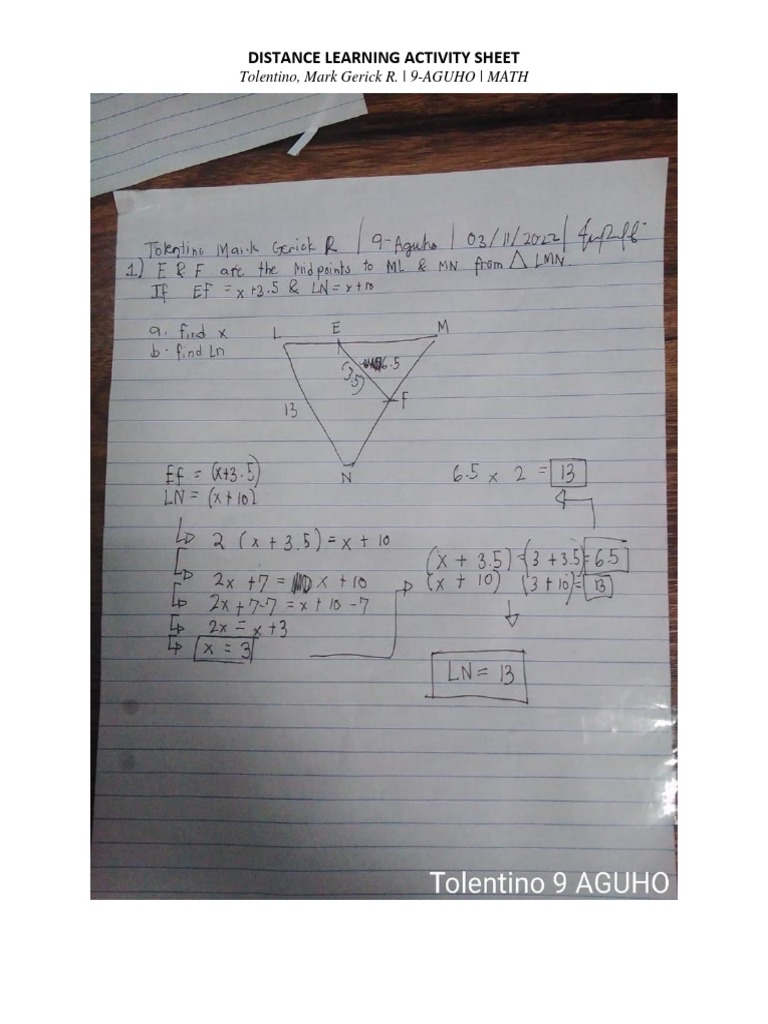 DISTANCE LEARNING ACTIVITY SHEET
Tolentino, Mark Gerick R. | 9-AGUHO | MATH
Tolentino Mark Gerick R | 9-Aguho | 03/11/2022 |
1) E & F are the Midpoints to ML & MN from △ LMN.
If Ef = x+3.5 & LN = x+10
a. find x
b. find Ln
L E M
6.5
(3.5)
F
13
N
Ef = (x+3.5)
LN = (x+10)
6.5 x 2 = 13
2 (x + 3.5) = x + 10
2x + 7 = x + 10
2x + 7-7 = x + 10 - 7
2x = x + 3
x = 3
(x + 3.5) = (3 + 3.5) = 6.5
(x + 10) (3 + 10) = 13
LN = 13
Tolentino 9 AGUHO